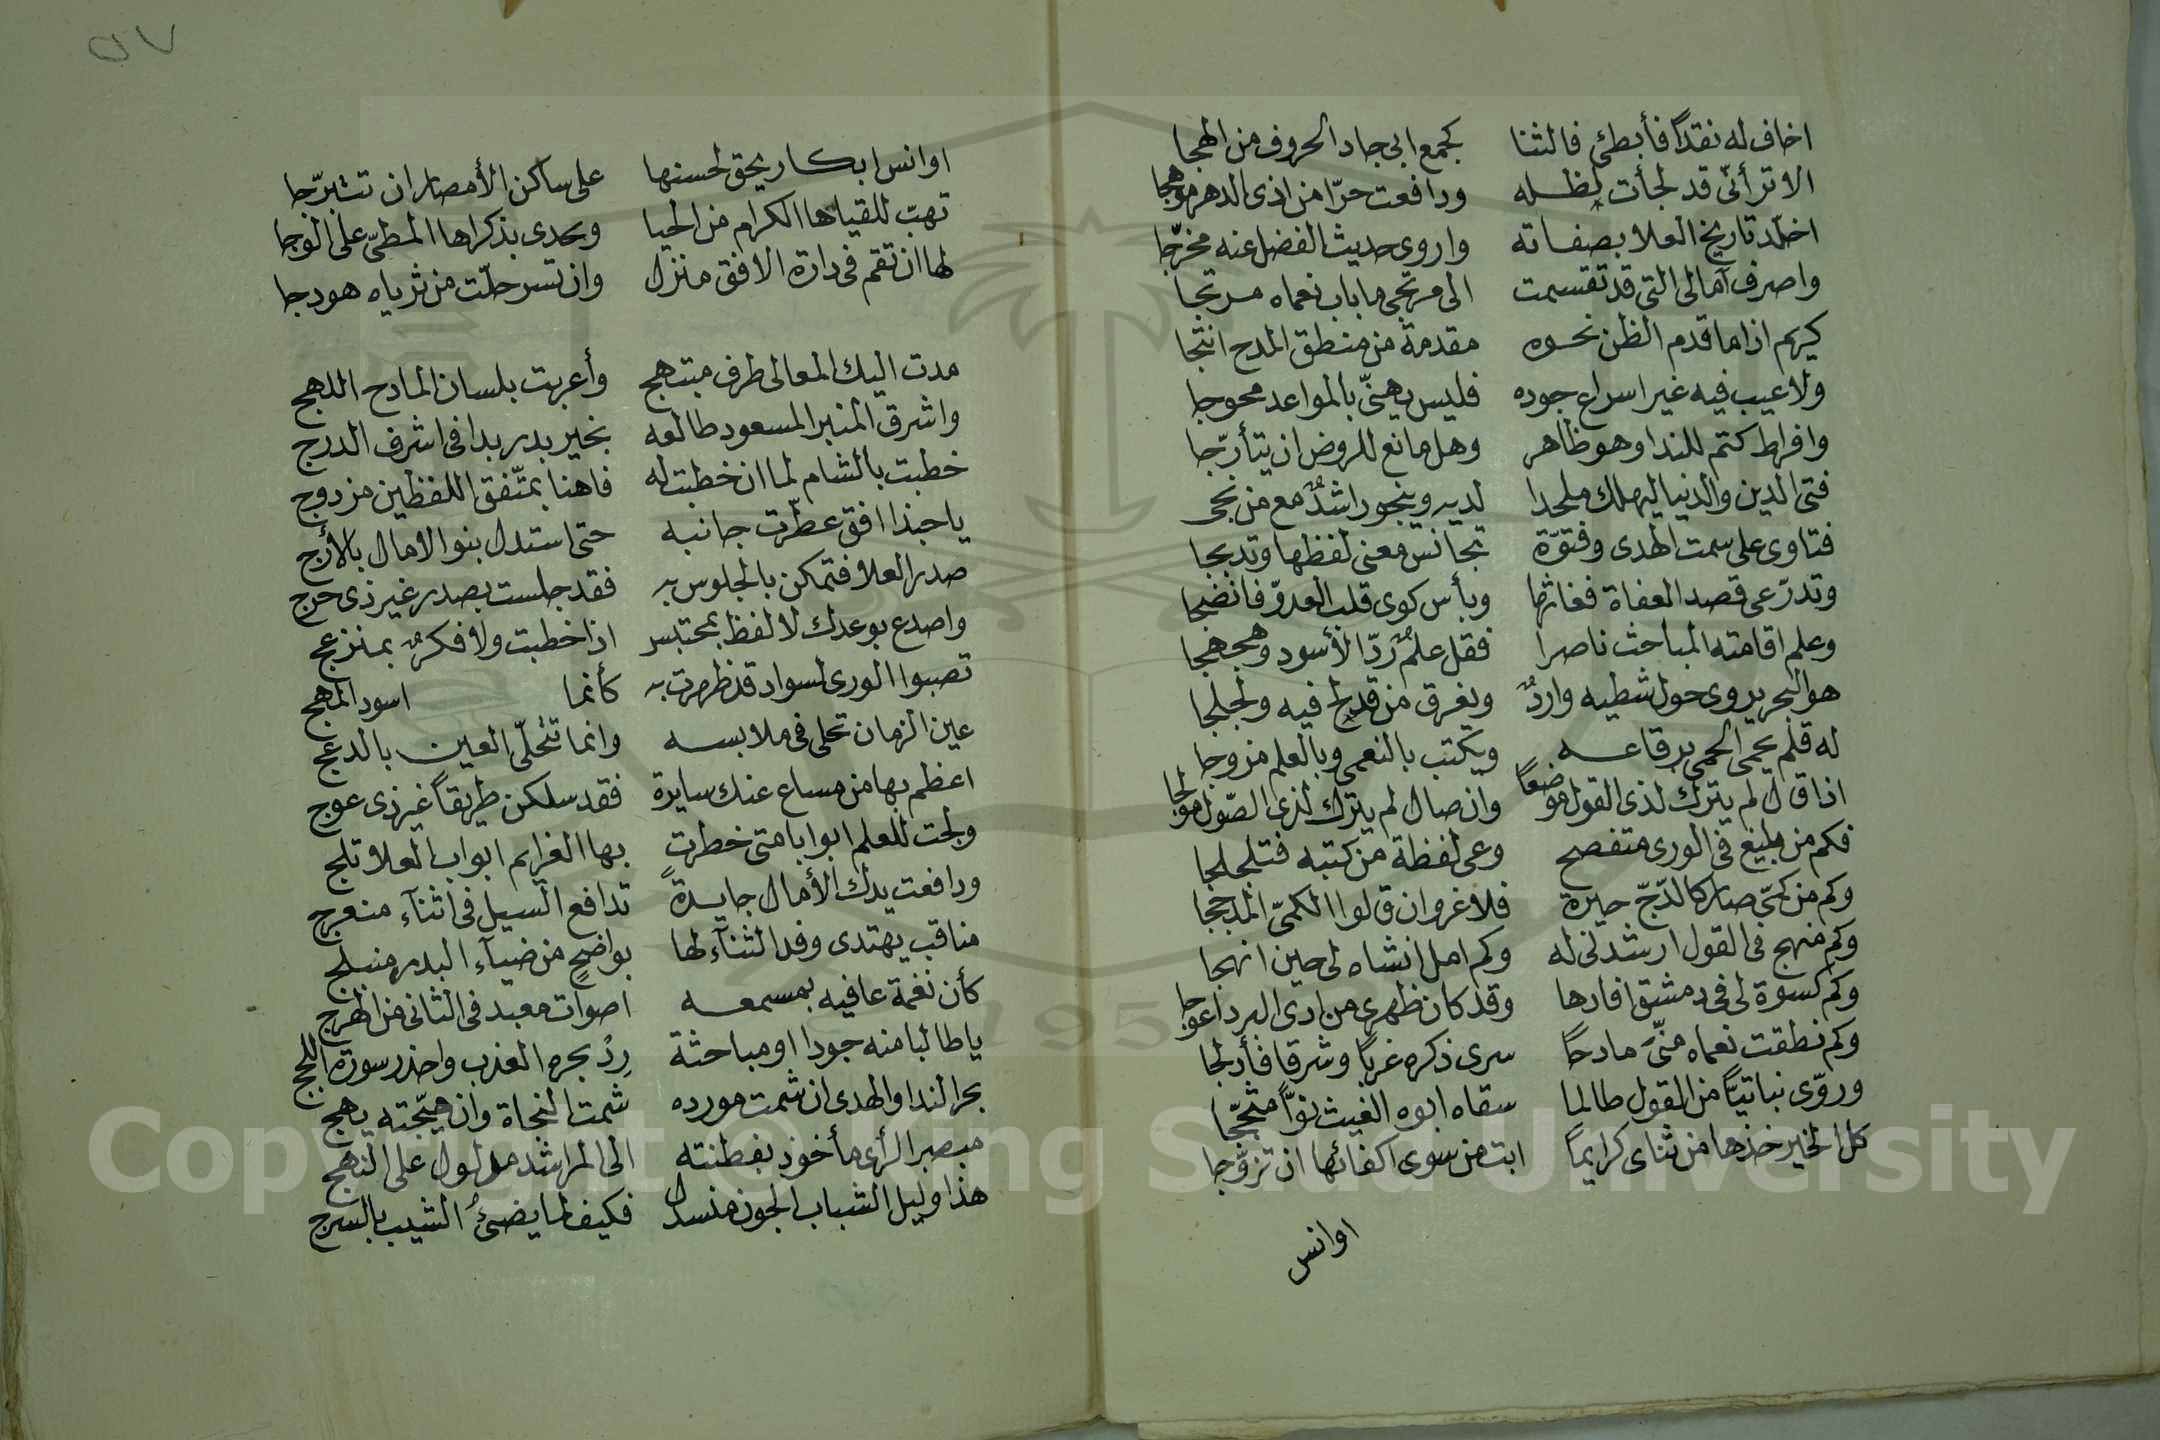 اخاف له نقداً فأبطئ فالثنا كجمع ابى جاد الحروف من الهجا
الا ترأنّى قد لجأت لظله ودافعت حرّا من اذى الدهر موهجا
اخلّد تاريخ العلا بصفاته واروى حديث الفضل عنه مخرّجا
واصرف آمالى التى قد تقسمت الى مرتجى ما باب نعماه مرتجا
كريم اذا ما قدم الظن نحوه مقدمة من منطق المدح انتجا
ولا عيب فيه غير اسراع جوده فليس يهنّى بالمواعد محوجا
وافراط كتم للندا وهو ظاهر وهل مانع للروض ان يتأرّجا
فتى الدين والدنيا ليهلك ملحدا لديه وينجو راشدٌ مع من نجى
فتاوى على سمت الهدى وفتوّة تجانس معنى لفظها وتدبجا
وتدرّعى قصد العفاة فغاثها وبأس كوى قلب العدوّ فانضجا
وعلم اقامته المباحث ناصرا فقل علمٌ ردّ الأسود وهجهجا
هو البحر يروى حول شطيه واردٌ ويغرق من قد لج فيه ولجلجا
له قلم يحمى الحمى برقاعه ويكتب بالنعمى وبالعلم مزوجا
اذا قال لم يترك لذى القول موضعاً وان صال لم يترك لذى الصّول مولجا
فكم من بليغ فى الورى متفصح وعى لفظة من كتبه فتلجلجا
وكم من كمىّ صار كالدّجّ حيرة فلا غرو ان قالوا الكمىّ المدججا
وكم منهج فى القول ارشدنى له وكم امل انشاه لى حين انهجا
وكم كسوة لى فى دمشق افادها وقد كان ظهرى من اذى البرد اعوجا
وكم نطقت نعماه منّى مادحاً سرى ذكره غرباً وشرقا فأدلجا
وروّى نباتيّاً من القول طالما سقاه ابوه الغيث نوّاً مثججّا
كل الخير خذها من ثناى كرايماً ابت من سوى اكفائها ان تزوّجا
اوانس
٥٧
اوانس ابكار يحق لحسنها على ساكن الأمصار ان تتبرّجا
تهبّ للقياها الكرام من الحيا ويحدى بذكراها المطىّ على الوجا
لها ان تقم فى دارة الافق منزل وان تسر حلّت من ثرياه هودجا
مدت اليك المعالى طرف مبتهج وأعربت بلسان المادح اللهج
واشرق المنبر المسعود طالعه بخير بدر بدا فى اشرف الدرج
خطبت بالشام لما ان خطبت له فاهنا بمتّفق اللفظين مزدوج
يا حبذا افق عطّرت جانبه حتى استدل بنو الامال بالأرج
صدر العلا فتمكن بالجلوس به فقد جلست بصدر غير ذى حرج
واصدع بوعدك لا لفظ بمحتبس اذا خطبت ولا فكرٌ بمنزعج
تصبوا الورى لسواد قد ظهرت به كأنما اسود المهج
عين الزمان تحلى فى ملابسه وانما تتحلّى العين بالدعج
اعظم بها من مساع عنك سايرة فقد سلكن طريقاً غير ذى عوج
ولجت للعلم ابوابا متى خطرت بها الغرايم ابواب العلا تلج
ودافعت يدك الأمال جايدةً تدافع السيل فى اثناء منعرج
مناقب يهتدى وفد الثناء لها بواضح من ضياء البدر منبلج
كأن نغمة عافيه بمسمعه اصوات معبد فى الثانى من الهزج
يا طالبا منه جودا او مباحثة رِدْ بحره العذب واحذر سورة اللجج
بحر الندا والهدى ان شمت مورده شمت النجاة وان هيّجته يهج
مبصر الرأى مأخوذ بفطنته الى المراشد مدلول على النهج
هذا وليل الشباب الجون منسدل فكيف لما يضئُ الشيب بالسرج